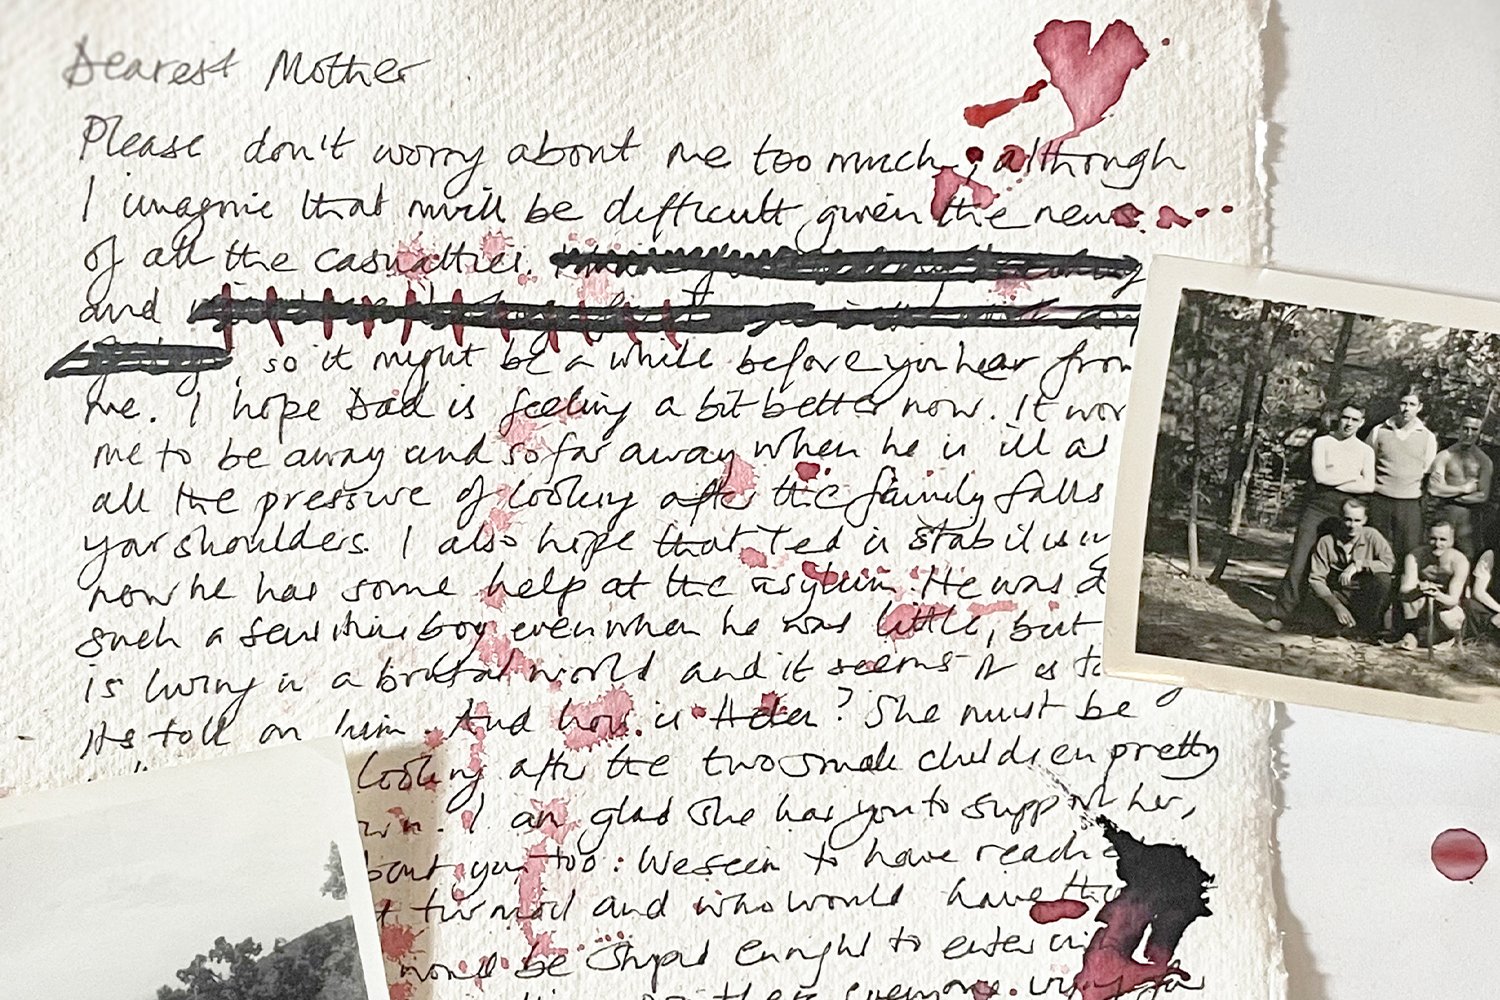 Dearest Mother
Please don't worry about me too much, although
I imagine that will be difficult given the news
of all the casualties.
and
, so it might be a while before you hear from
me. I hope Dad is feeling a bit better now. It wor
me to be away and so far away when he is ill as
all the pressure of looking after the family falls
your shoulders. I also hope that Ted is stabilising
now he has some help at the asylum. He was a
such a sensitive boy even when he was little, but
is living in a brutal world and it seems it is
its toll on him. And how is Hilda? She must be
looking after the two small children pretty
. I am glad she has you to support her,
bout you too: We seem to have reache
and who would have
would be stupid enough to enter